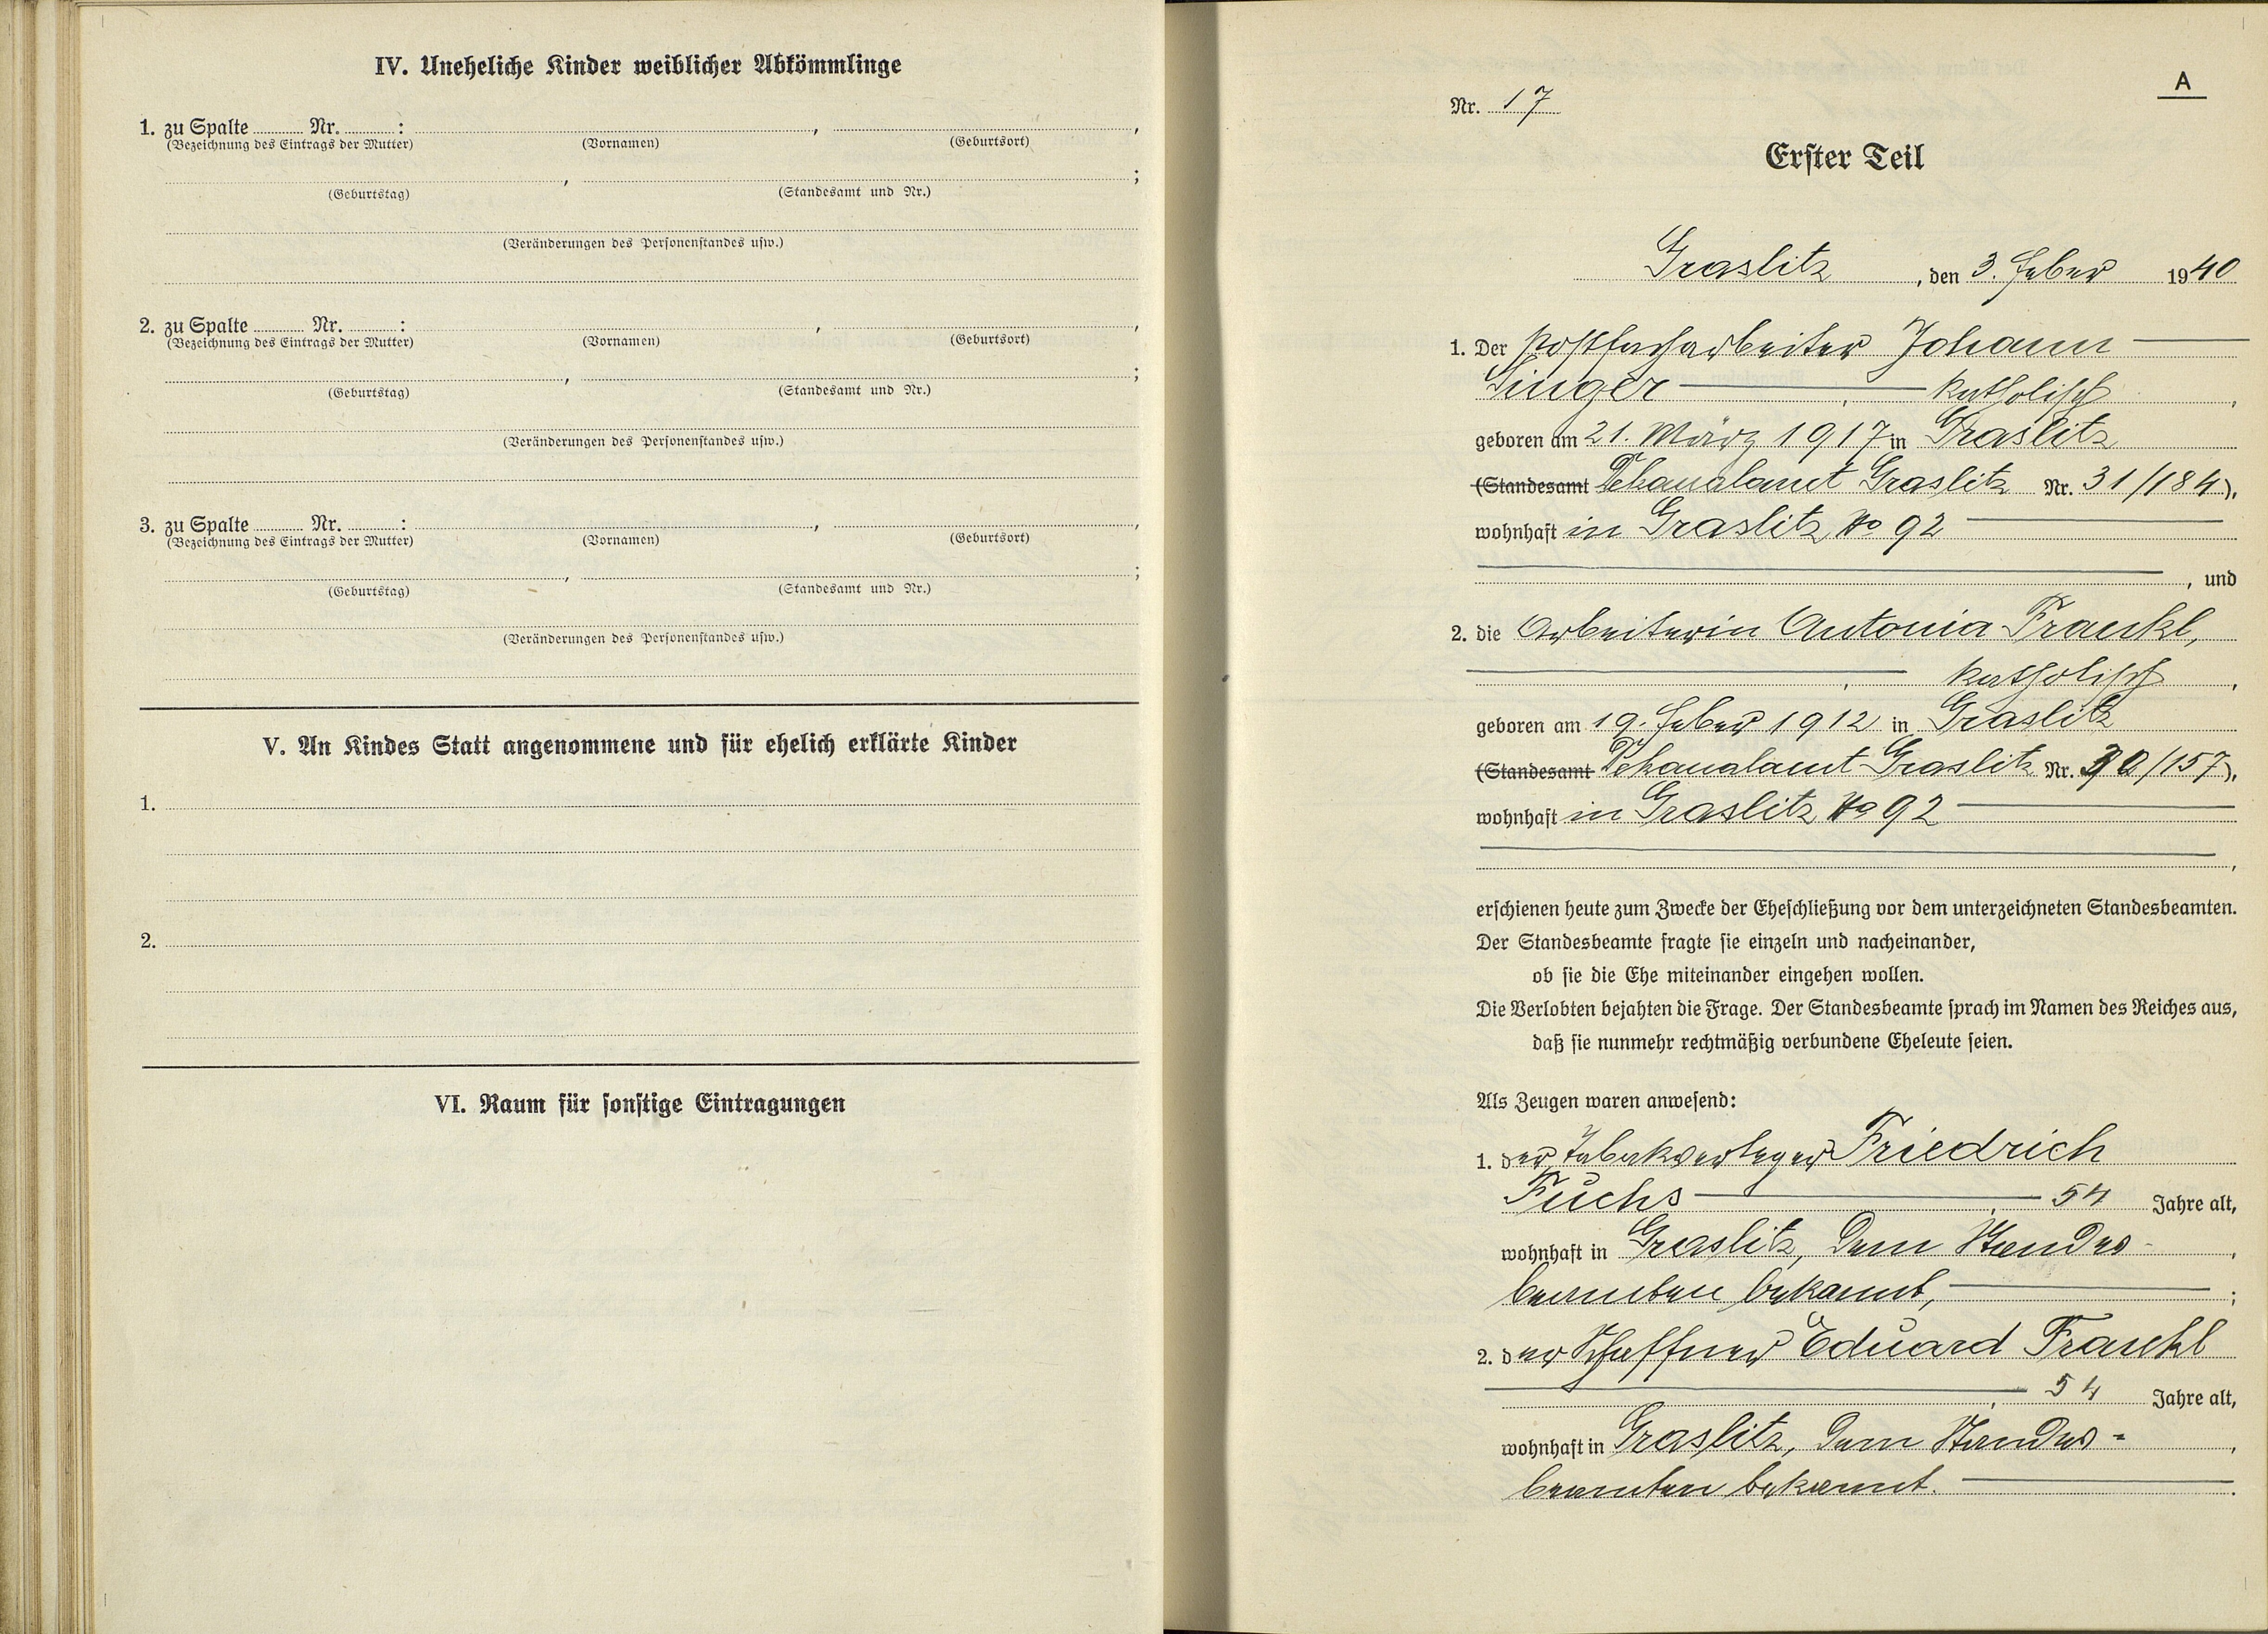 IV. Uneheliche Kinder weiblicher Abkömmlinge
1. zu Spalte ........ Nr. ........ :
(Bezeichnung des Eintrags der Mutter) (Vornamen) (Geburtsort)
(Geburtstag) (Standesamt und Nr.)
(Veränderungen des Personenstandes usw.)
2. zu Spalte ........ Nr. ........ :
(Bezeichnung des Eintrags der Mutter) (Vornamen) (Geburtsort)
(Geburtstag) (Standesamt und Nr.)
(Veränderungen des Personenstandes usw.)
3. zu Spalte ........ Nr. ........ :
(Bezeichnung des Eintrags der Mutter) (Vornamen) (Geburtsort)
(Geburtstag) (Standesamt und Nr.)
(Veränderungen des Personenstandes usw.)
V. An Kindes Statt angenommene und für ehelich erklärte Kinder
1.
2.
VI. Raum für sonstige Eintragungen
A
Nr. 17
Erster Teil
Graslitz, den 3. Feber 1940
1. Der Postfacharbeiter Johann
Singer, katholisch,
geboren am 21. März 1917 in Graslitz
(Standesamt Dekanalamt Graslitz Nr. 31/184),
wohnhaft in Graslitz No 92
, und
2. die Arbeiterin Antonia Frankl,
, katholisch,
geboren am 19. Feber 1912 in Graslitz
(Standesamt Dekanalamt Graslitz Nr. 30/157),
wohnhaft in Graslitz No 92
,
erschienen heute zum Zwecke der Eheschließung vor dem unterzeichneten Standesbeamten.
Der Standesbeamte fragte sie einzeln und nacheinander,
ob sie die Ehe miteinander eingehen wollen.
Die Verlobten bejahten die Frage. Der Standesbeamte sprach im Namen des Reiches aus,
daß sie nunmehr rechtmäßig verbundene Eheleute seien.
Als Zeugen waren anwesend:
1. der Tabakverleger Friedrich
Fuchs, 54 Jahre alt,
wohnhaft in Graslitz, dem Standes-,
beamten bekannt, ;
2. der Schaffner Eduard Frankl
, 54 Jahre alt,
wohnhaft in Graslitz, dem Standes-,
beamten bekannt.